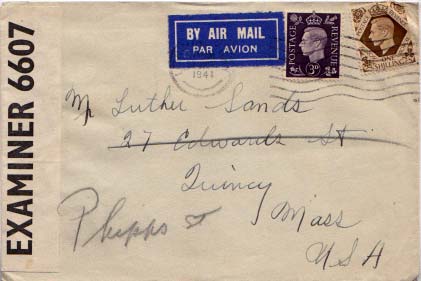 EXAMINER 6607
BY AIR MAIL
PAR AVION
1941
POSTAGE REVENUE
3D
ONE
SHILLING
Mr Luther Sands
27 Edwards St
Quincy
Phipps St
Mass
USA